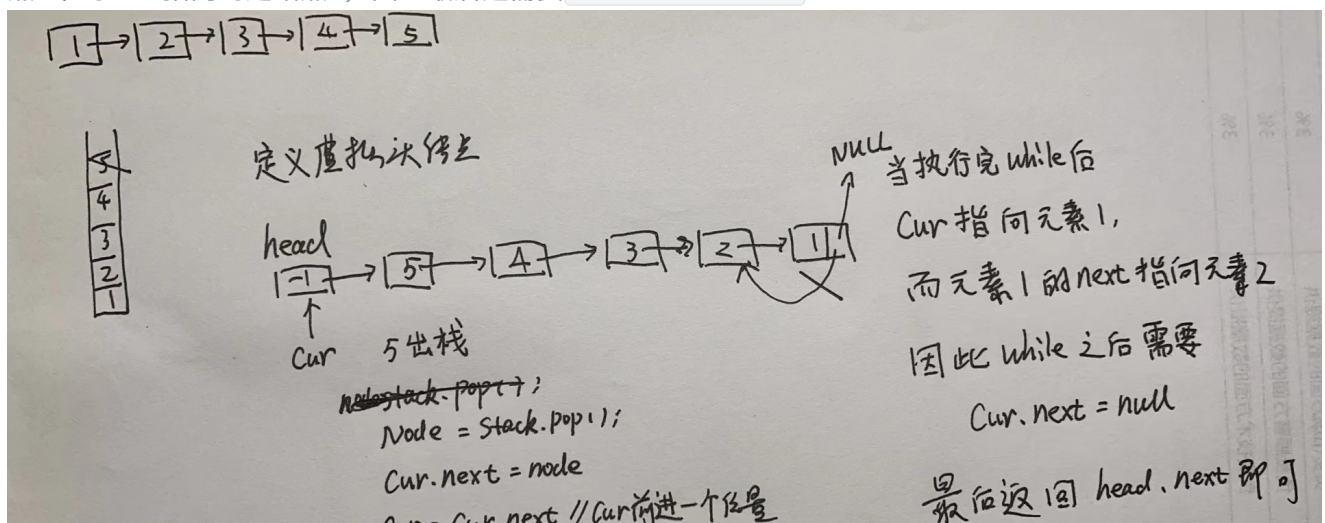 1 → 2 → 3 → 4 → 5
5
4
3
2
1
定义虚拟头结点
head
-1 → 5 → 4 → 3 → 2 → 1
NULL
Cur
5出栈
stack.pop();
Node = Stack.pop();
Cur.next = node
Cur.next //Cur前进一个位置
当执行完while后
Cur指向元素1,
而元素1的next指向元素2
因此while之后需要
Cur.next = null
最后返回 head.next 即可